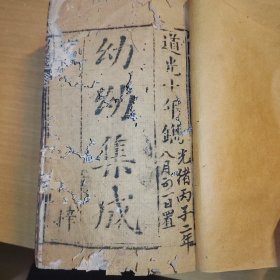 道光十年鐫
光緒丙子二年
八月初一日置
幼幼集成
梓